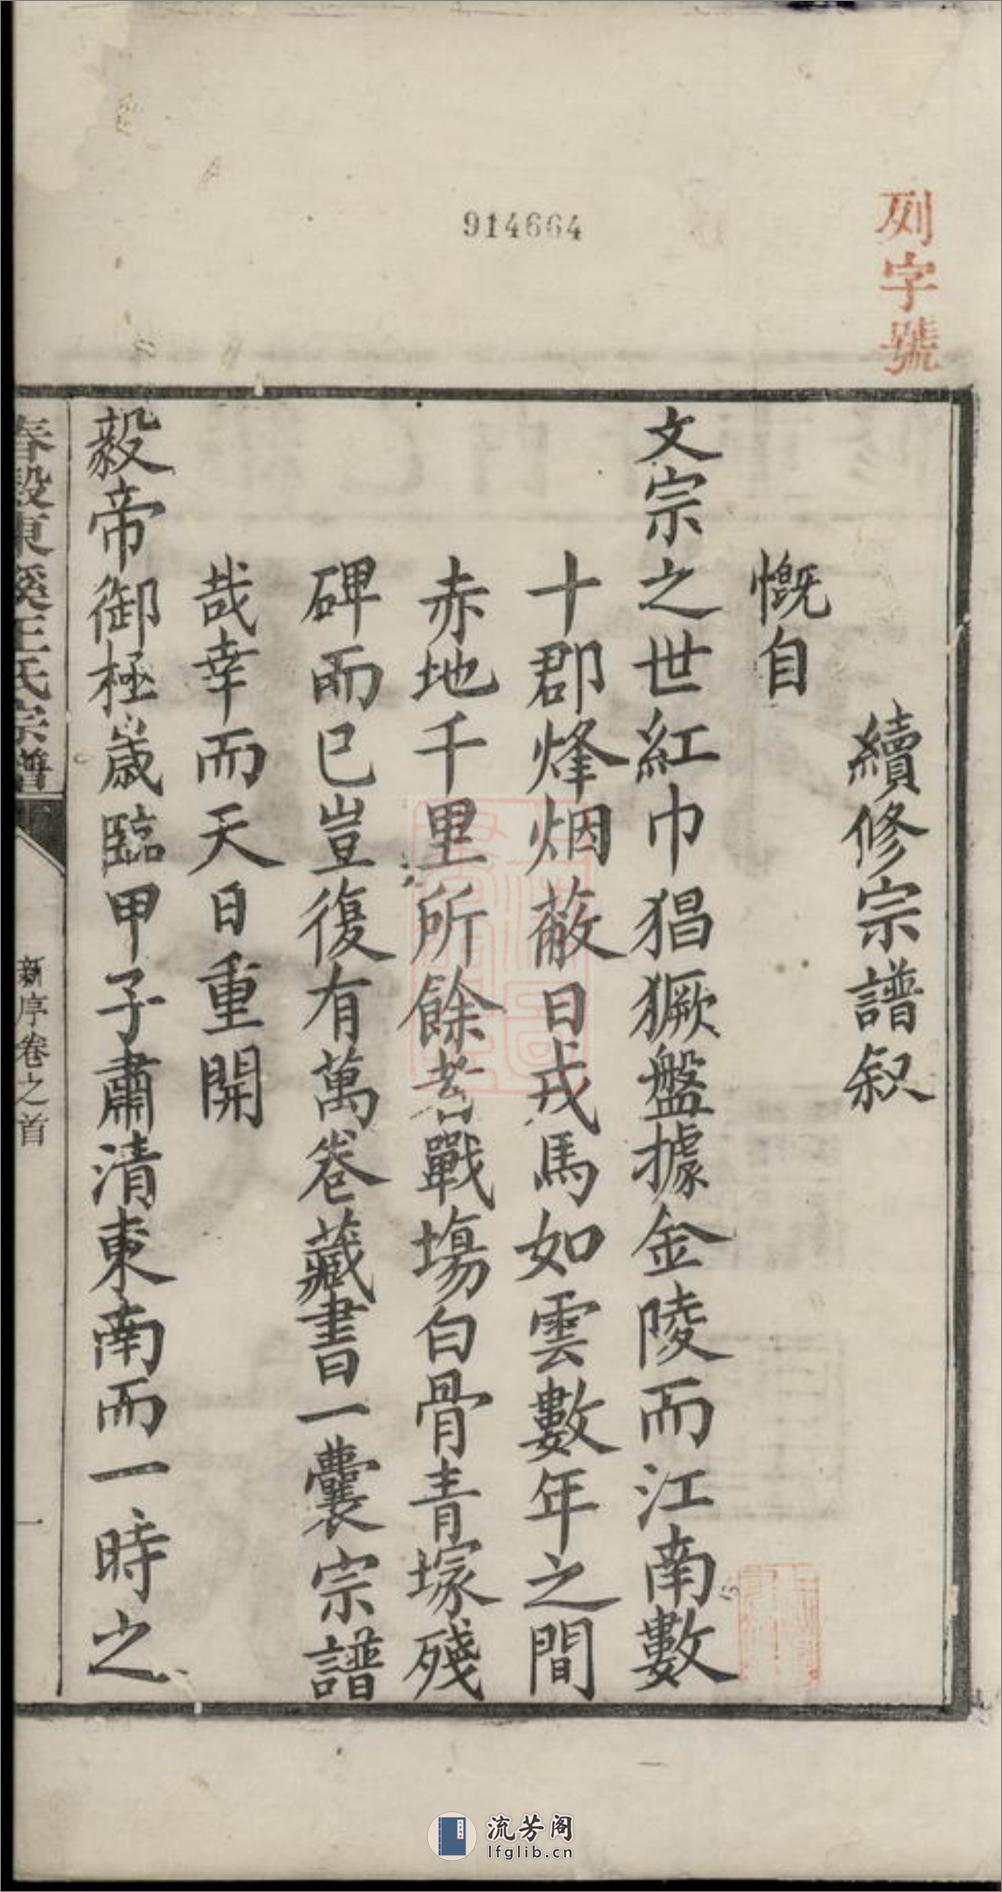 914664
列字號
續修宗譜叙
慨自
文宗之世紅巾猖獗盤據金陵而江南數
十郡烽烟蔽日戎馬如雲數年之間
赤地千里所餘者戰塲白骨青塚殘
碑而已豈復有萬卷藏書一囊宗譜
哉幸而天日重開
毅帝御極歲臨甲子肅清東南而一時之
春穀東溪王氏宗譜
新序卷之首
一
流芳阁
lfglib.cn